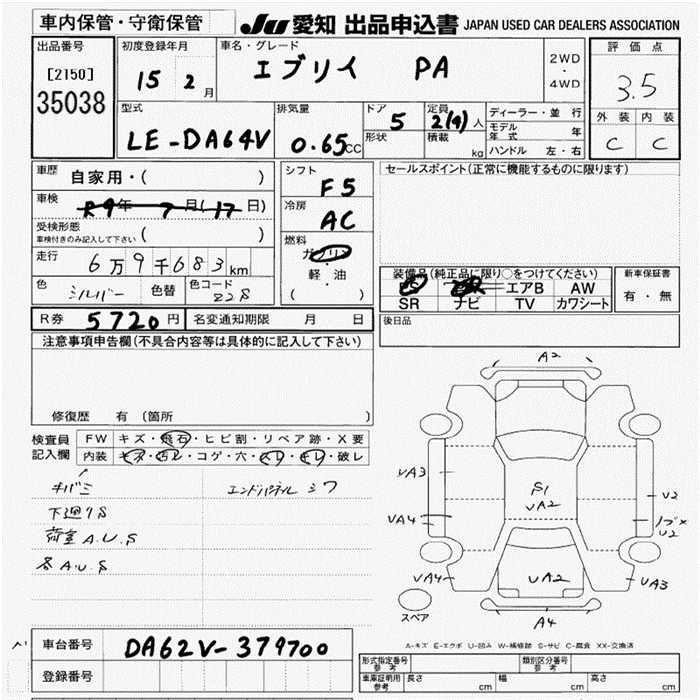 車内保管・守衛保管 JU 愛知 出品申込書 JAPAN USED CAR DEALERS ASSOCIATION
出品番号 初度登録年月 車名・グレード 2WD・4WD 評価点
[2150] 35038 15 2 月 エブリイ PA 3.5
型式 排気量 ドア 定員 ディーラー・並行 外装 内装
LE-DA64V 0.65cc 5 2(4)人 モデル年式 年 C C
形状 積載 kg ハンドル 左・右
車歴 自家用・( ) シフト F5 セールスポイント(正常に機能するものに限ります)
車検 R9年 7月(17日) 冷房 AC
受検形態 ( )
車検付きのみ記入して下さい
燃料 ガソリン
走行 6万9千683km 軽・油
( )
装備品(純正品に限り○をつけてください) 新車保証書
色 シルバー 色替 色コード Z2S PS エアB AW 有・無
SR ナビ TV カワシート
R券 5720円 名変通知期限 月 日 後日品
注意事項申告欄(不具合内容等は具体的に記入して下さい)
修復歴 有 (箇所
検査員記入欄 FW キズ・飛石・ヒビ割・リペア跡・X要
内装 キズ・汚レ・コゲ・穴・スレ・キレ・破レ
キバミ エンドパネル シワ
下廻りS
荷室A.U.S
各A.U.S
A2
UA3
S1
UA2
U2
UA4
U2
UA4
UA2
UA3
スペア
A4
A-キズ E-エクボ U-凹み W-補修跡 S-サビ C-腐食 XX-交換済
車台番号 DA62V-379700
登録番号
形式指定番号 参考 類別区分番号 参考
車庫証明用 参考 長さ cm 幅 cm 高さ cm